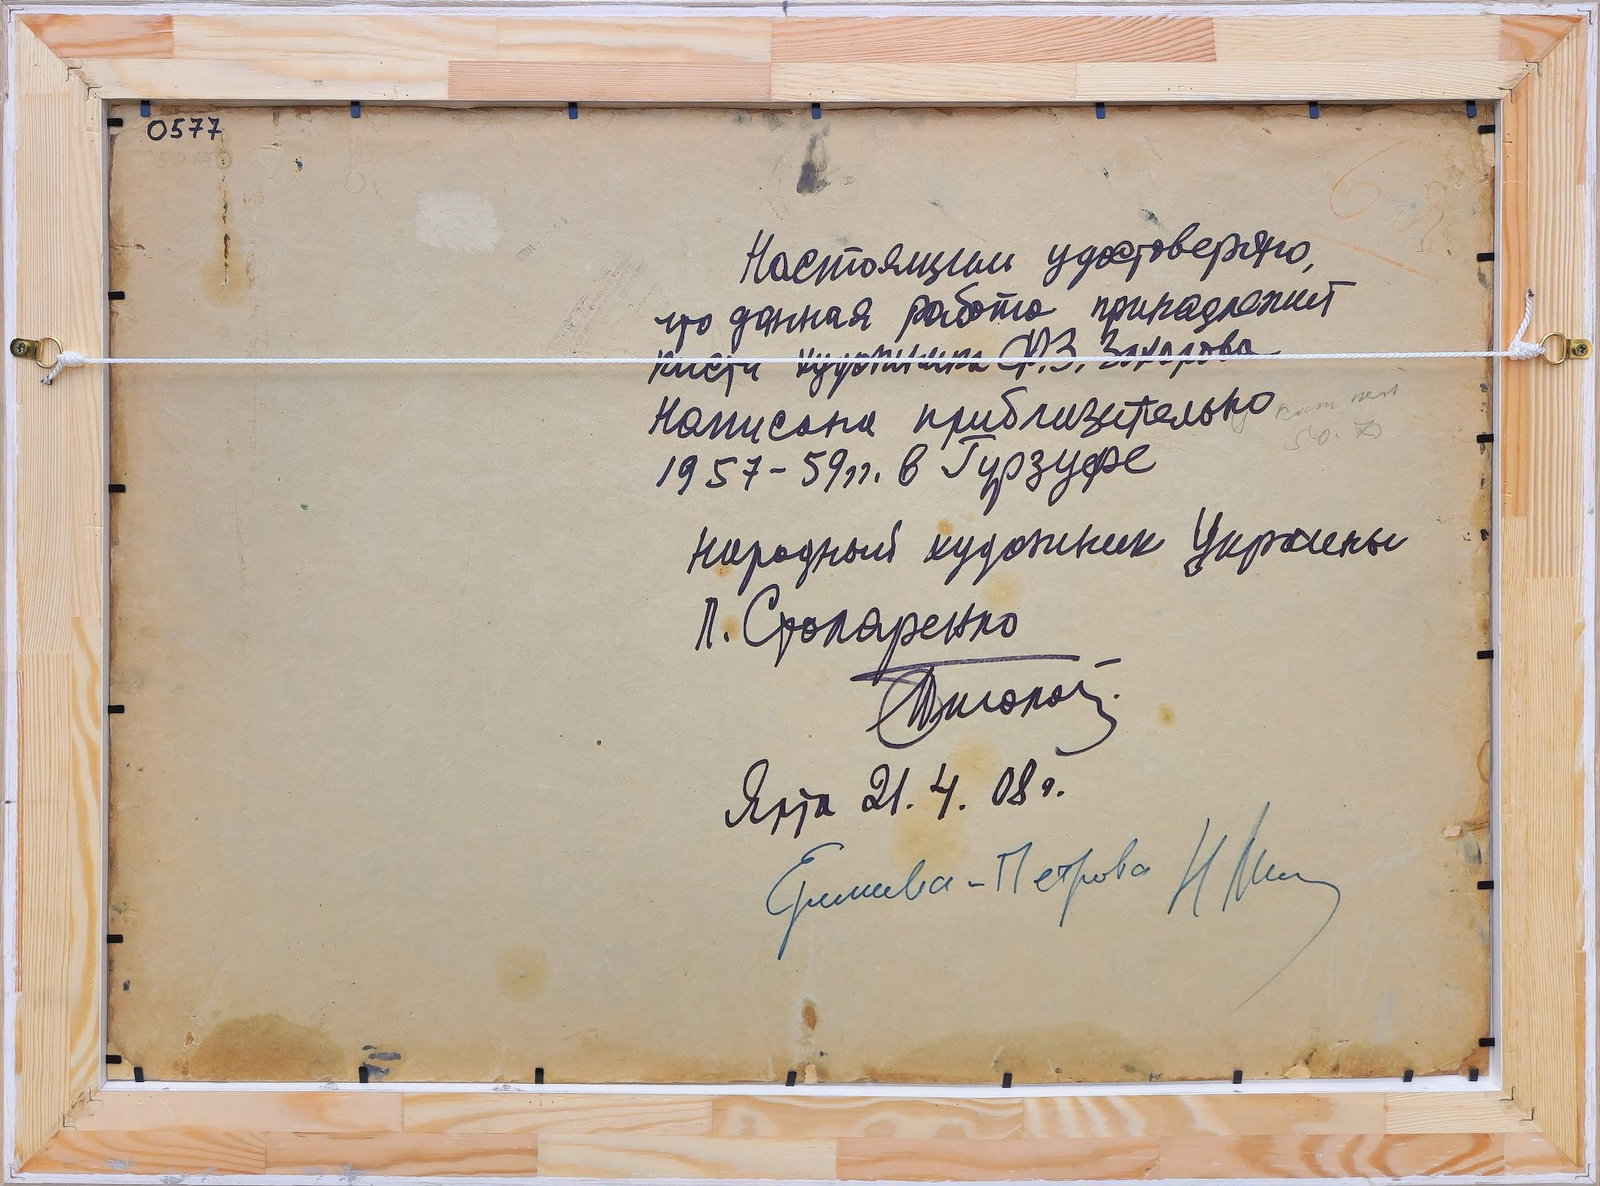 0577
Настоящим удостоверяю,
что данная работа принадлежит
кисти художника Ф.З. Захарова
Написана приблизительно
1957-59гг. в Гурзуфе
Народный художник Украины
П. Столяренко
Ялта 21.4.08г.
Петрова